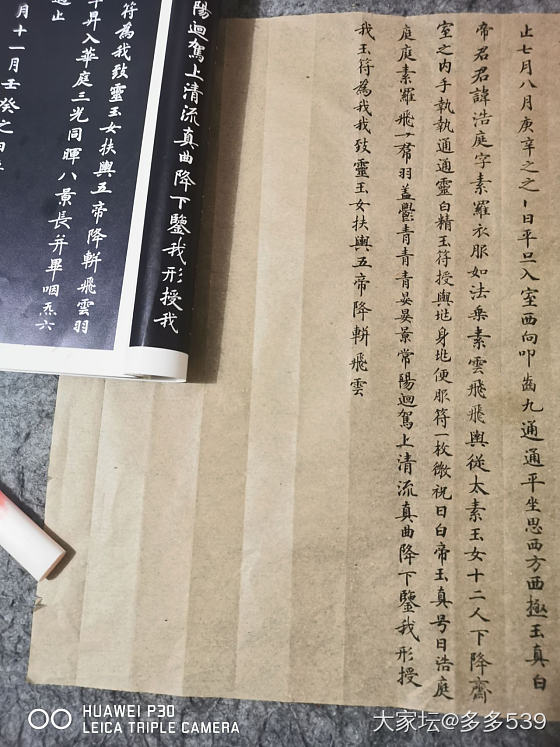 止七月八月庚辛之之日平旦入室西向叩齒九通通平坐思西方極玉真白
帝君君諱浩庭字素羅衣服如法乘素雲飛飛輿從太素玉女十二人下降齋
室之内手執執通通靈白精玉符授與兆身兆便服符一枚微祝曰白帝玉真号曰浩庭
庭庭素羅飛羽蓋鬱青青青晏晏景常陽迴駕上清流真曲降下鑒我形授
我玉符為我我致靈玉女扶輿五帝降軿飛雲
陽迴駕上清流真曲降下鑒我形授我
符為我致靈玉女扶輿五帝降軿飛雲羽
昇入華庭三光同暉八景長并畢咽炁六
過止
月十一月壬癸之日平
HUAWEI P30
LEICA TRIPLE CAMERA
大家坛@多多539